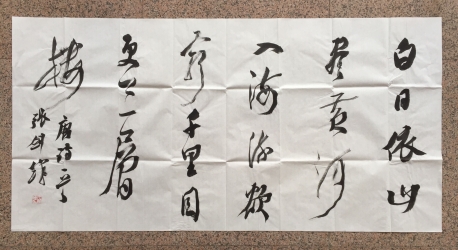 白日依山
尽黄河
入海流欲
窮千里目
更上一層
楼
唐诗一首
張剑